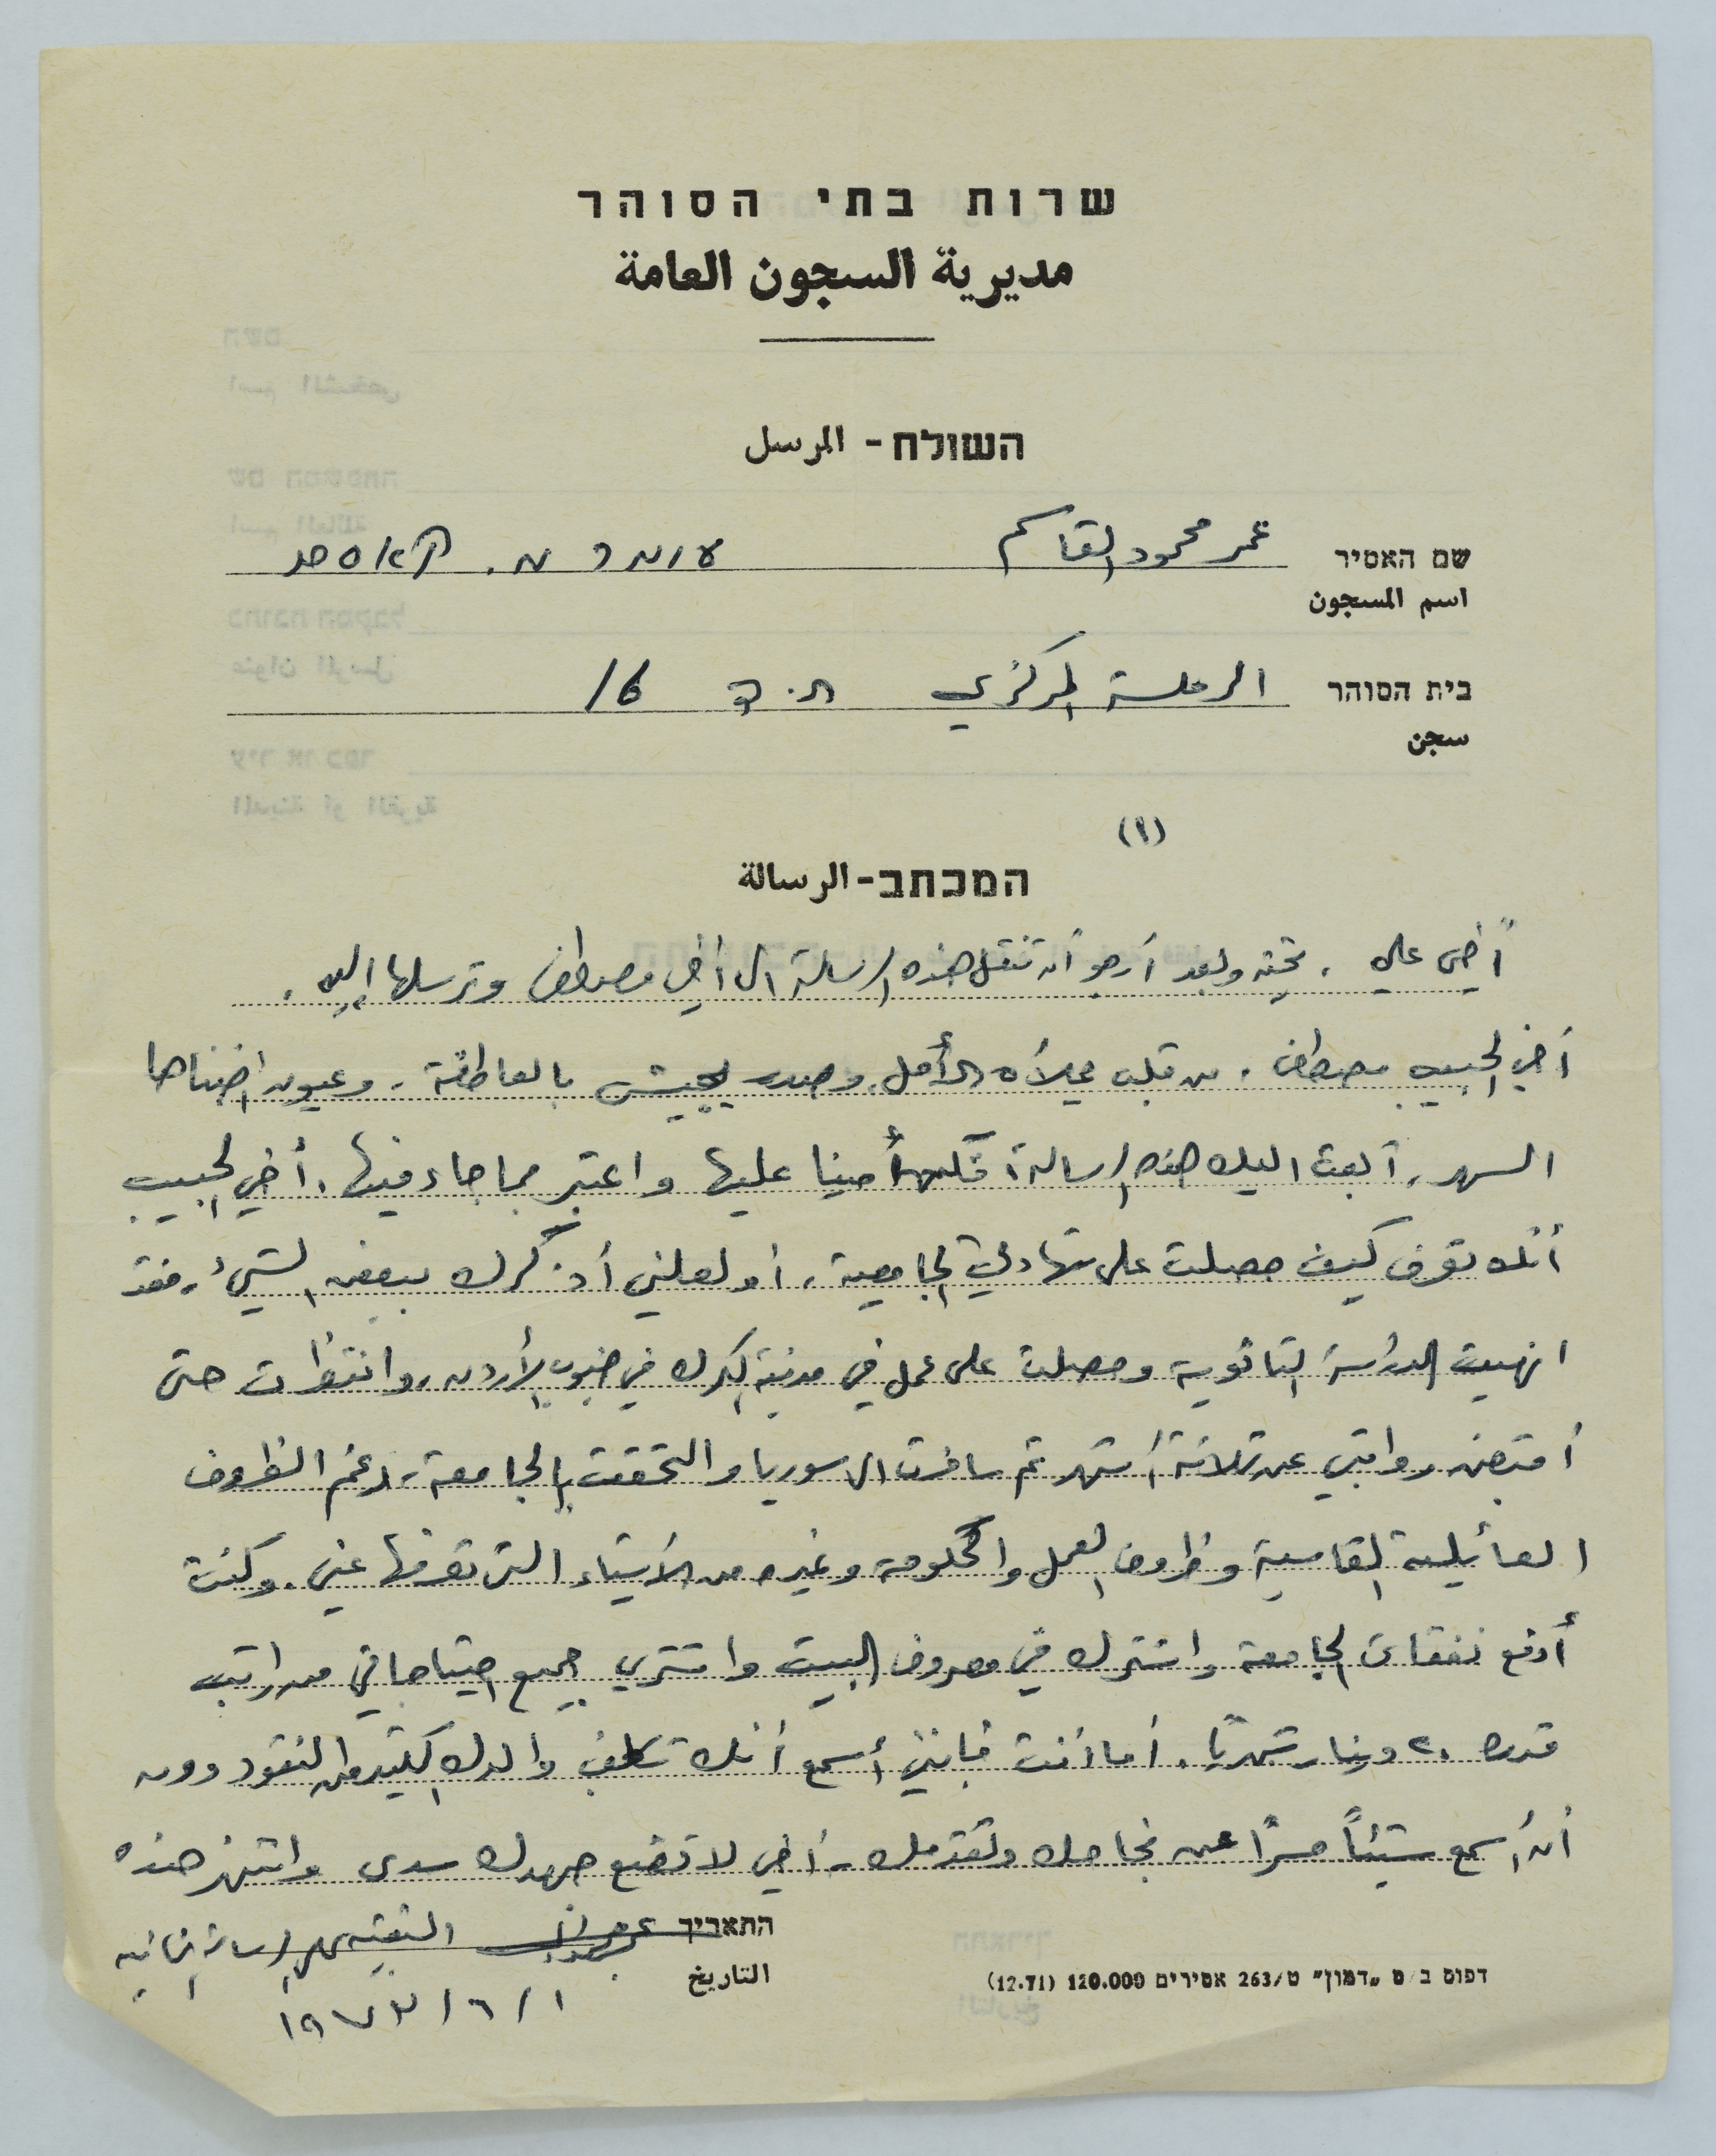 שרות בתי הסוהר
مديرية السجون العامة
השולח - المرسل
שם האסיר عمر محمود القاسم עומר מ. קאסם
اسم المسجون
בית הסוהר الرملة المركزي ת.ד 16
سجن
(١)
המכתב - الرسالة
أخي علي . تحية وبعد أرجو أن تنقل هذه الرسالة الى أخي مصطفى وترسلها إليه .
أخي الحبيب مصطفى . من قلب يملأه الأمل وصدر يجيش بالعاطفة . وعيون اضناها
السهر . أبعث اليك هذه الرسالة أمينا عليها واعتبر بما جاء فيها . أخي الحبيب
أنك تعرف كيف حصلت على شهادتي الجامعية ، أو لعلني أذكرك ببعض الشيء . فقد
انهيت الدراسة الثانوية وحصلت على عمل في مدينة الكرك في جنوب الأردن ، وانتظرت حتى
أقبض رواتبي عن ثلاثة أشهر ثم سافرت الى سوريا والتحقت بالجامعة ، رغم الظروف
العائلية القاسية وظروف العمل والحكومة وغيره من الأشياء التي تعرفها عني . وكنت
أدفع نفقات الجامعة واشترك في مصروف البيت واشتري جميع احتياجاتي من راتب
قدره ٢٠ دينار شهريًا . أما أنت فإنني أسمع أنك تكلف والدك الكثير من النقود دون
أن أسمع شيئاً مسرًا عن نجاحك وتقدمك - أخي لا تضع جهدك سدى وانتهز هذه
התאריך البقية في الرسالة الثانية
التاريخ ١ / ٦ / ١٩٧٣
דפוס ב/ס "דמון" ט/263 אסירים 120.000 (12.71)